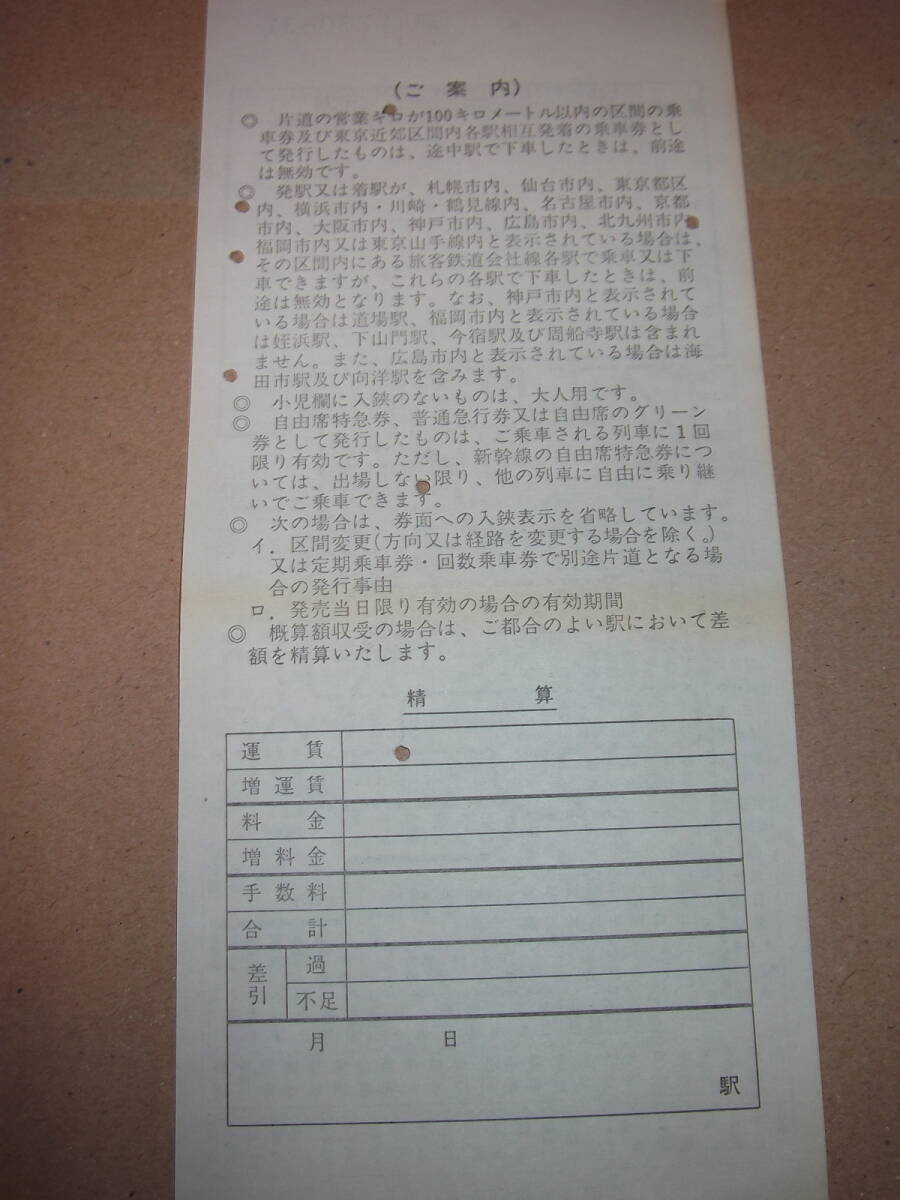 (ご案内)
◎ 片道の営業キロが100キロメートル以内の区間の乗
車券及び東京近郊区間内各駅相互発着の乗車券とし
て発行したものは、途中駅で下車したときは、前途
は無効です。
◎ 発駅又は着駅が、札幌市内、仙台市内、東京都区
内、横浜市内・川崎・鶴見線内、名古屋市内、京都
市内、大阪市内、神戸市内、広島市内、北九州市内
福岡市内又は東京山手線内と表示されている場合は、
その区間内にある旅客鉄道会社線各駅で乗車又は下
車できますが、これらの各駅で下車したときは、前
途は無効となります。なお、神戸市内と表示されて
いる場合は道場駅、福岡市内と表示されている場合
は姪浜駅、下山門駅、今宿駅及び周船寺駅は含まれ
ません。また、広島市内と表示されている場合は海
田市駅及び向洋駅を含みます。
◎ 小児欄に入鋏のないものは、大人用です。
◎ 自由席特急券、普通急行券又は自由席のグリーン
券として発行したものは、ご乗車される列車に1回
限り有効です。ただし、新幹線の自由席特急券につ
いては、出場しない限り、他の列車に自由に乗り継
いでご乗車できます。
◎ 次の場合は、券面への入鋏表示を省略しています。
イ．区間変更(方向又は経路を変更する場合を除く。)
又は定期乗車券・回数乗車券で別途片道となる場
合の発行事由
ロ．発売当日限り有効の場合の有効期間
◎ 概算額収受の場合は、ご都合のよい駅において差
額を精算いたします。
精算
運賃
増運賃
料金
増料金
手数料
合計
差引
過
不足
月 日
駅